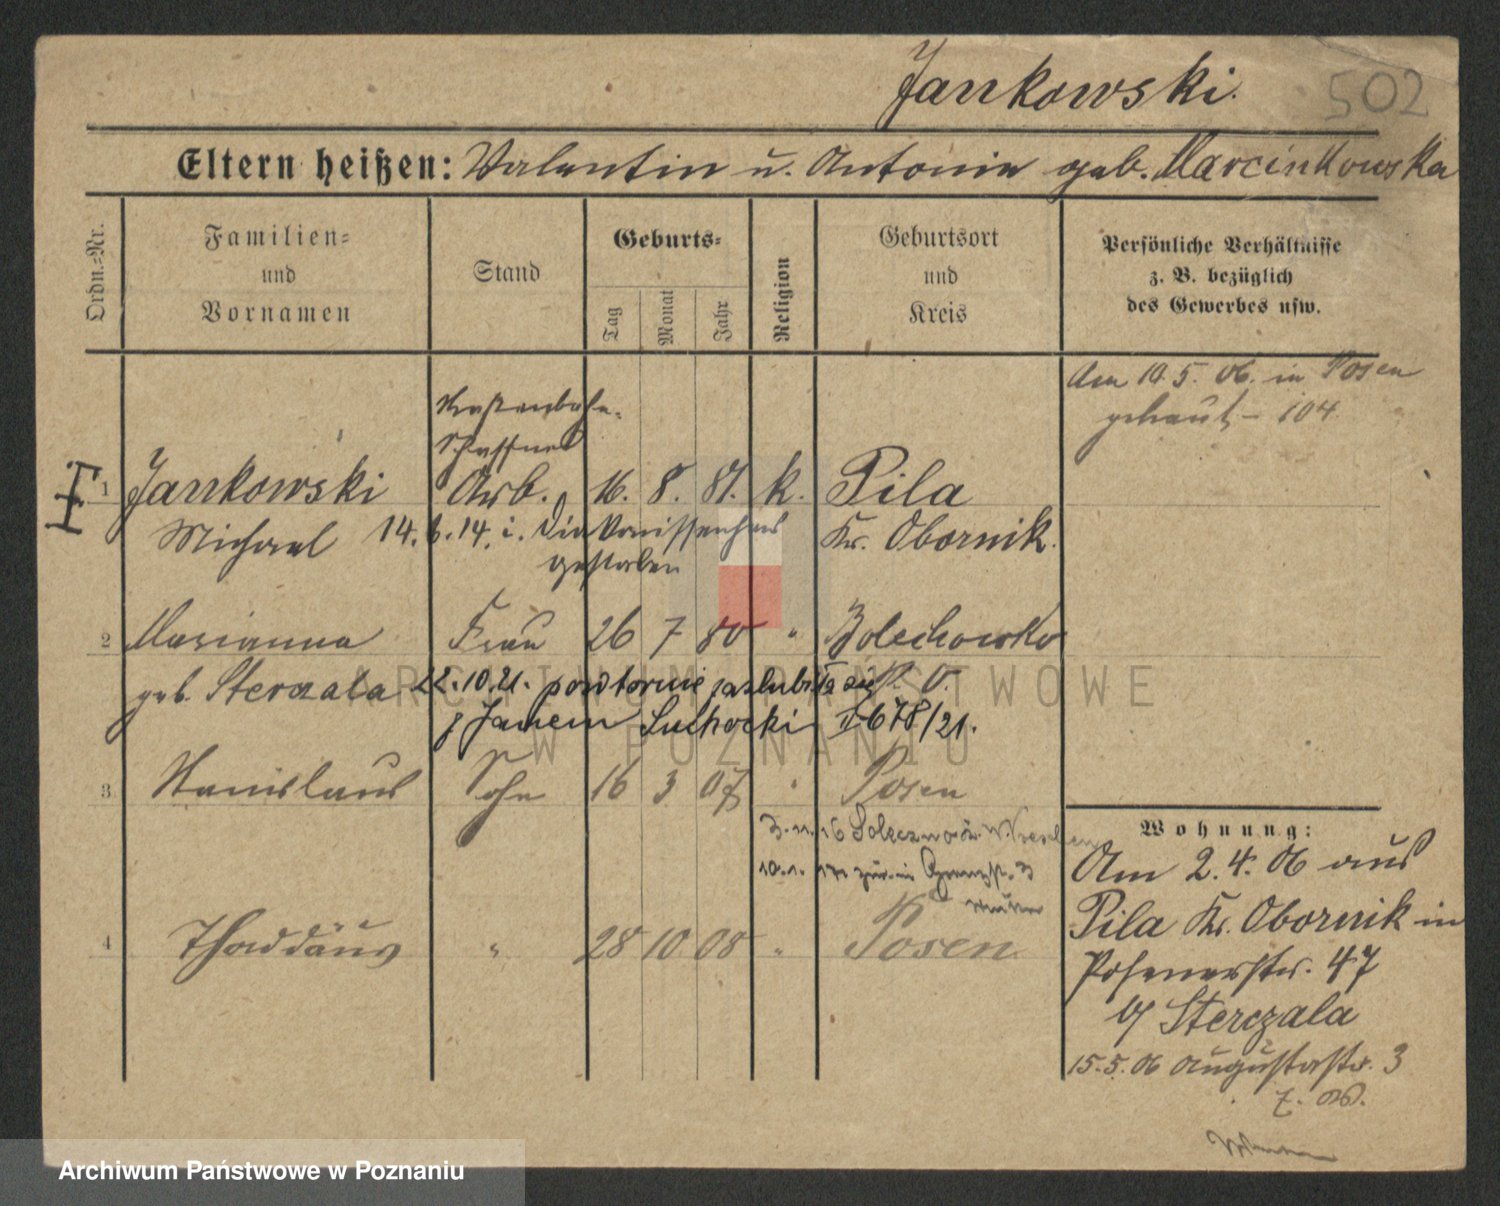 Jankowski.
502
Eltern heißen: Valentin u. Antonie geb. Marcinkowska
Ordn.-Nr.
Familien-
und
Vornamen
Stand
Geburts-
Tag
Monat
Jahr
Religion
Geburtsort
und
Kreis
Persönliche Verhältnisse
z. B. bezüglich
des Gewerbes usw.
Am 10.5. 06. in Posen
getraut - 104
Straßenbahn-
Schaffner
1 Jankowski Arb. 16. 8. 81. k. Pila
Michael 14.6.14. i. Diakonissenhaus Kr. Obornik.
gestorben
2 Marianna Frau 26 7 80 " Bolechowko
geb. Sterczala 22.10.21. powtórnie zaślubiła się P. O.
z Janem Suchocki II 678/21.
3 Stanislaus Sohn 16 3 07 " Posen
3.11.16 Soleczno
10.1.17 zur. in 3
4 Thaddäus " 28 10 08 " Posen.
Wohnung:
Am 2.4.06 aus
Pila Kr. Obornik in
Posenerstr. 47
b/ Sterczala
15.5.06 Augustastr. 3
ARCHIWUM PAŃSTWOWE
W POZNANIU
Archiwum Państwowe w Poznaniu